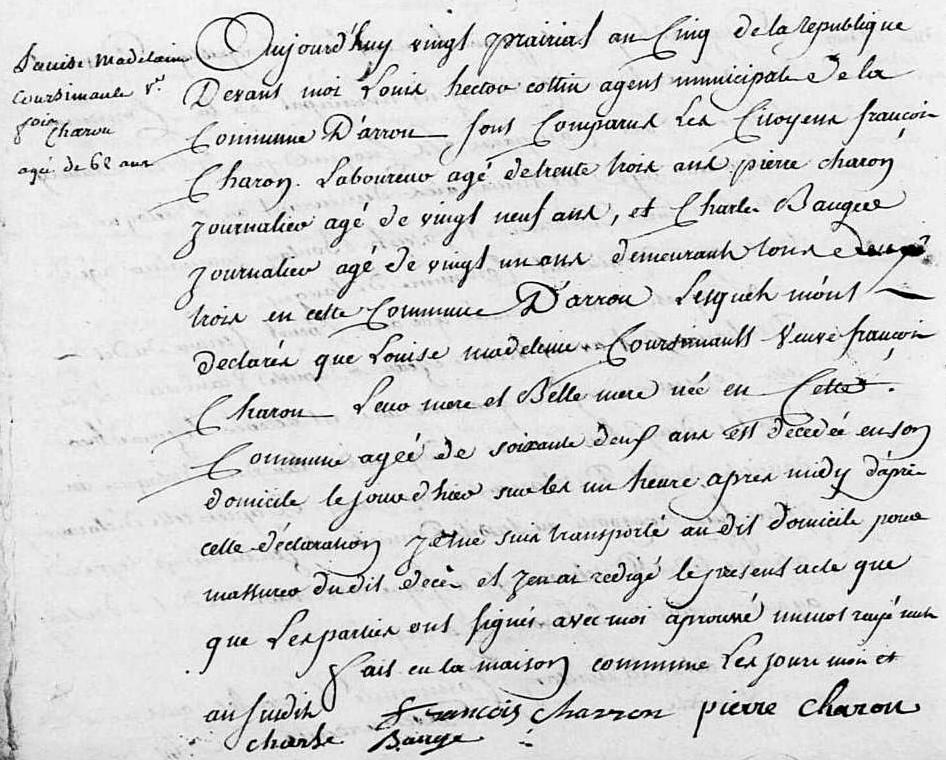 Louise Madelaine
Coursimault v.e
fois
Charon
agé de 62 ans
Aujourd'huy vingt prairial an Cinq de la Republique
Devant moi Louis hector cottin agent municipale de la
Commune D'arrou sont Comparus Les Citoyens françois
Charon Laboureur agé de trente trois ans pierre charon
journalier agé de vingt neuf ans, et Charles Baugée
journalier agé de vingt un ans demeurant tous
trois en cette Commune D'arrou Lesquels m'ont
declarés que Louise madeleine Coursimault Veuve françois
Charon Leur mere et Belle mere née en Cette
Commune agéé de soixante deux ans est decedéé en son
domicile le jour d'hier sur les un heure apres midy d'après
cette déclaration je me suis transporté au dit domicile pour
massurer du dit decès et j'en ai redigé le present acte que
que Les parties ont signés avec moi aprouvé un mot rayé nul
fait en la maison commune Les jour mois et
an susdits françois charron pierre charon
charle Bauge